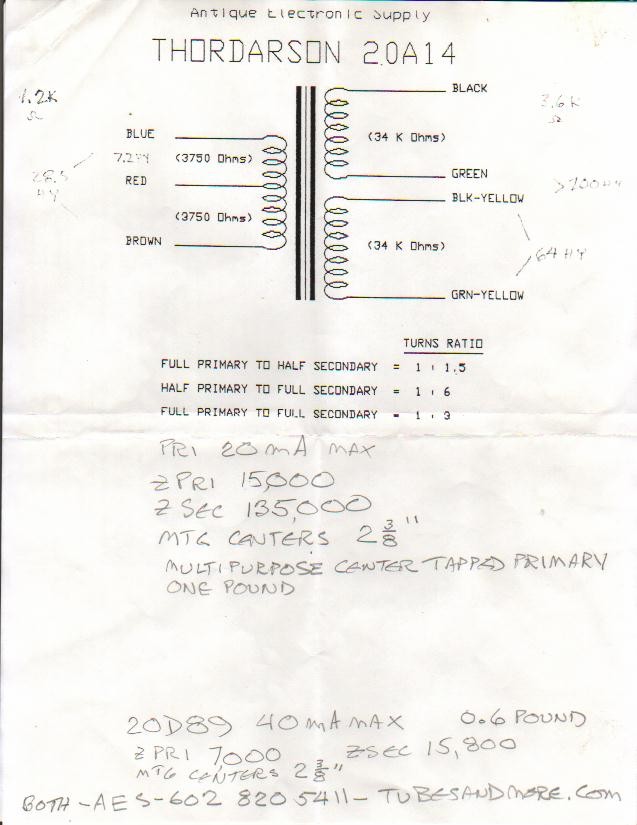 Antique Electronic Supply
THORDARSON 20A14
1.2K
Ω
BLACK
3.6K
Ω
BLUE
(34 K Ohms)
7.2HY
(3750 Ohms)
28.5
HY
RED
GREEN
>200HY
BLK-YELLOW
(3750 Ohms)
BROWN
(34 K Ohms)
64 HY
GRN-YELLOW
TURNS RATIO
FULL PRIMARY TO HALF SECONDARY = 1 : 1.5
HALF PRIMARY TO FULL SECONDARY = 1 : 6
FULL PRIMARY TO FULL SECONDARY = 1 : 3
PRI 20 mA MAX
Z PRI 15,000
Z SEC 135,000
MTG CENTERS 2 3/8"
MULTIPURPOSE CENTER TAPPED PRIMARY
ONE POUND
20D89 40 mA MAX 0.6 POUND
Z PRI 7000 Z SEC 15,800
MTG CENTERS 2 3/8"
BOTH - AES - 602 820 5411 - TUBESANDMORE.COM